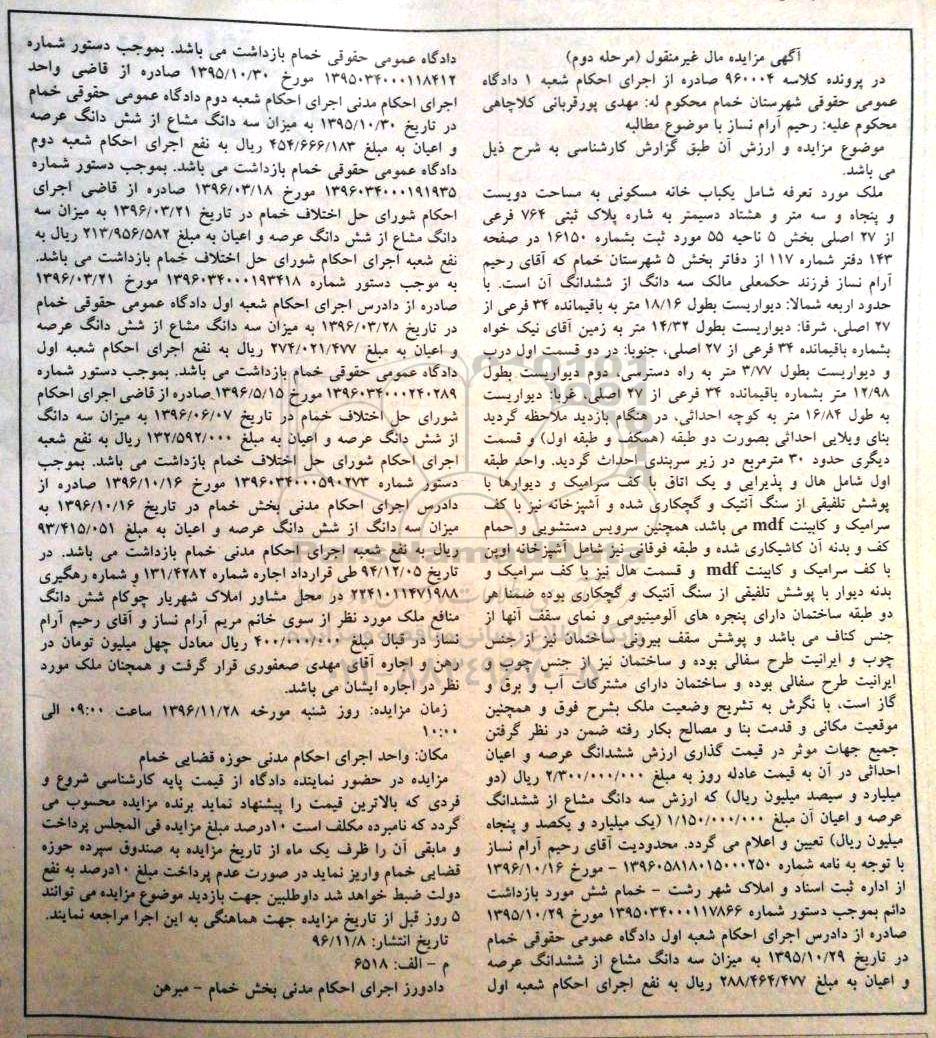 آگهی مزایده مال غیرمنقول (مرحله دوم)
در پرونده کلاسه ۹۶۰۰۰۴ صادره از اجرای احکام شعبه ۱ دادگاه
عمومی حقوقی شهرستان خمام محکوم له: مهدی پورقربانی کلاچاهی
محکوم علیه: رحیم آرام نساز با موضوع مطالبه
موضوع مزایده و ارزش آن طبق گزارش کارشناسی به شرح ذیل
می باشد.
ملک مورد تعرفه شامل یکباب خانه مسکونی به مساحت دویست
و پنجاه و سه متر و هشتاد دسیمتر به شاره پلاک ثبتی ۷۶۴ فرعی
از ۲۷ اصلی بخش ۵ ناحیه ۵۵ مورد ثبت بشماره ۱۶۱۵۰ در صفحه
۱۴۳ دفتر شماره ۱۱۷ از دفاتر بخش ۵ شهرستان خمام که آقای رحیم
آرام نساز فرزند حکمعلی مالک سه دانگ از ششدانگ آن است. با
حدود اربعه شمالا: دیواریست بطول ۱۸/۱۶ متر به باقیمانده ۳۴ فرعی از
۲۷ اصلی، شرقا: دیواریست بطول ۱۴/۳۲ متر به زمین آقای نیک خواه
بشماره باقیمانده ۳۴ فرعی از ۲۷ اصلی، جنوبا: در دو قسمت اول درب
و دیواریست بطول ۳/۷۷ متر به راه دسترسی، دوم دیواریست بطول
۱۲/۹۸ متر بشماره باقیمانده ۳۴ فرعی از ۲۷ اصلی، غربا: دیواریست
به طول ۱۶/۸۴ متر به کوچه احداثی، در هنگام بازدید ملاحظه گردید
بنای ویلایی احداثی بصورت دو طبقه (همکف و طبقه اول) و قسمت
دیگری حدود ۳۰ مترمربع در زیر سربندی احداث گردید. واحد طبقه
اول شامل هال و پذیرایی و یک اتاق با کف سرامیک و دیوارها با
پوشش تلفیقی از سنگ آنتیک و گچکاری شده و آشپزخانه نیز با کف
سرامیک و کابینت mdf می باشد، همچنین سرویس دستشویی و حمام
کف و بدنه آن کاشیکاری شده و طبقه فوقانی نیز شامل آشپزخانه اوپن
با کف سرامیک و کابینت mdf و قسمت هال نیز با کف سرامیک و
بدنه دیوار با پوشش تلفیقی از سنگ آنتیک و گچکاری بوده ضمنا هر
دو طبقه ساختمان دارای پنجره های آلومینیومی و نمای سقف آنها از
جنس کناف می باشد و پوشش سقف بیرونی ساختمان نیز از جنس
چوب و ایرانیت طرح سفالی بوده و ساختمان نیز از جنس چوب و
ایرانیت طرح سفالی بوده و ساختمان دارای مشترکات آب و برق و
گاز است، با نگرش به تشریح وضعیت ملک بشرح فوق و همچنین
موقعیت مکانی و قدمت بنا و مصالح بکار رفته ضمن در نظر گرفتن
جمیع جهات موثر در قیمت گذاری ارزش ششدانگ عرصه و اعیان
احداثی در آن به قیمت عادله روز به مبلغ ۲/۳۰۰/۰۰۰/۰۰۰ ریال (دو
میلیارد و سیصد میلیون ریال) که ارزش سه دانگ مشاع از ششدانگ
عرصه و اعیان آن مبلغ ۱/۱۵۰/۰۰۰/۰۰۰ (یک میلیارد و یکصد و پنجاه
میلیون ریال) تعیین و اعلام می گردد. محدودیت آقای رحیم آرام نساز
با توجه به نامه شماره ۱۳۹۶۰۵۸۱۸۰۱۵۰۰۰۲۵۰ - مورخ ۱۳۹۶/۱۰/۱۶
از اداره ثبت اسناد و املاک شهر رشت - خمام شش مورد بازداشت
دائم بموجب دستور شماره ۱۳۹۵۰۳۴۰۰۰۱۱۷۸۶۶ مورخ ۱۳۹۵/۱۰/۲۹
صادره از دادرس اجرای احکام شعبه اول دادگاه عمومی حقوقی خمام
در تاریخ ۱۳۹۵/۱۰/۲۹ به میزان سه دانگ مشاع از ششدانگ عرصه
و اعیان به مبلغ ۲۸۸/۴۶۴/۴۷۷ ریال به نفع اجرای احکام شعبه اول
دادگاه عمومی حقوقی خمام بازداشت می باشد. بموجب دستور شماره
۱۳۹۵۰۳۴۰۰۰۱۱۸۴۱۲ مورخ ۱۳۹۵/۱۰/۳۰ صادره از قاضی واحد
اجرای احکام مدنی اجرای احکام شعبه دوم دادگاه عمومی حقوقی خمام
در تاریخ ۱۳۹۵/۱۰/۳۰ به میزان سه دانگ مشاع از شش دانگ عرصه
و اعیان به مبلغ ۴۵۴/۶۶۶/۱۸۳ ریال به نفع اجرای احکام شعبه دوم
دادگاه عمومی حقوقی خمام بازداشت می باشد. بموجب دستور شماره
۱۳۹۶۰۳۴۰۰۰۱۹۱۹۳۵ مورخ ۱۳۹۶/۰۳/۱۸ صادره از قاضی اجرای
احکام شورای حل اختلاف خمام در تاریخ ۱۳۹۶/۰۳/۲۱ به میزان سه
دانگ مشاع از شش دانگ عرصه و اعیان به مبلغ ۲۱۳/۹۵۶/۵۸۲ ریال به
نفع شعبه اجرای احکام شورای حل اختلاف خمام بازداشت می باشد.
به موجب دستور شماره ۱۳۹۶۰۳۴۰۰۰۱۹۳۴۱۸ مورخ ۱۳۹۶/۰۳/۲۱
صادره از دادرس اجرای احکام شعبه اول دادگاه عمومی حقوقی خمام
در تاریخ ۱۳۹۶/۰۳/۲۸ به میزان سه دانگ مشاع از شش دانگ عرصه
و اعیان به مبلغ ۲۷۴/۰۲۱/۴۷۷ ریال به نفع اجرای احکام شعبه اول
دادگاه عمومی حقوقی خمام بازداشت می باشد. بموجب دستور شماره
۱۳۹۶۰۳۴۰۰۰۲۴۰۲۸۹ مورخ ۱۳۹۶/۵/۱۵ صادره از قاضی اجرای احکام
شورای حل اختلاف خمام در تاریخ ۱۳۹۶/۰۶/۰۷ به میزان سه دانگ
از شش دانگ عرصه و اعیان به مبلغ ۱۳۲/۵۹۲/۰۰۰ ریال به نفع شعبه
اجرای احکام شورای حل اختلاف خمام بازداشت می باشد. بموجب
دستور شماره ۱۳۹۶۰۳۴۰۰۰۵۹۰۲۷۳ مورخ ۱۳۹۶/۱۰/۱۶ صادره از
دادرس اجرای احکام مدنی بخش خمام در تاریخ ۱۳۹۶/۱۰/۱۶ به
میزان سه دانگ از شش دانگ عرصه و اعیان به مبلغ ۹۳/۴۱۵/۰۵۱
ریال به نفع شعبه اجرای احکام مدنی خمام بازداشت می باشد. در
تاریخ ۹۴/۱۲/۰۵ طی قرارداد اجاره شماره ۱۳۱/۴۲۸۲ و شماره رهگیری
۲۲۴۱۰۱۱۴۷۱۹۸۸ در محل مشاور املاک شهریار چوکام شش دانگ
منافع ملک مورد نظر از سوی خانم مریم آرام نساز و آقای رحیم آرام
نساز در قبال مبلغ ۴۰۰/۰۰۰/۰۰۰ ریال معادل چهل میلیون تومان در
رهن و اجاره آقای مهدی صعفوری قرار گرفت و همچنان ملک مورد
نظر در اجاره ایشان می باشد.
زمان مزایده: روز شنبه مورخه ۱۳۹۶/۱۱/۲۸ ساعت ۰۹:۰۰ الی
۱۰:۰۰
مکان: واحد اجرای احکام مدنی حوزه قضایی خمام
مزایده در حضور نماینده دادگاه از قیمت پایه کارشناسی شروع و
فردی که بالاترین قیمت را پیشنهاد نماید برنده مزایده محسوب می
گردد که نامبرده مکلف است ۱۰درصد مبلغ مزایده فی المجلس پرداخت
و مابقی آن را ظرف یک ماه از تاریخ مزایده به صندوق سپرده حوزه
قضایی خمام واریز نماید در صورت عدم پرداخت مبلغ ۱۰درصد به نفع
دولت ضبط خواهد شد داوطلبین جهت بازدید موضوع مزایده می توانند
۵ روز قبل از تاریخ مزایده جهت هماهنگی به این اجرا مراجعه نمایند.
تاریخ انتشار: ۹۶/۱۱/۸
م - الف: ۶۵۱۸
دادورز اجرای احکام مدنی بخش خمام - میرهن